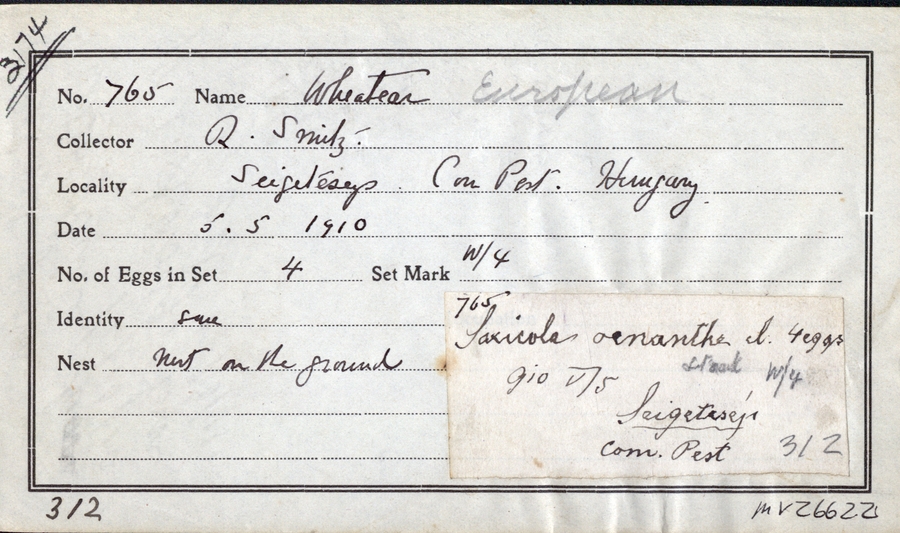 3174
No. 765 Name Wheatear European
Collector R. Smitz.
Locality Seigetéseps. Com Pest. Hungary.
Date 5. 5 1910
No. of Eggs in Set 4 Set Mark W/4
Identity sure
Nest Nest on the ground
765
Saxicola oenanthe L. 4 eggs
910 V/5 W/4
Seigetesép
Com. Pest 312
312
MV26622